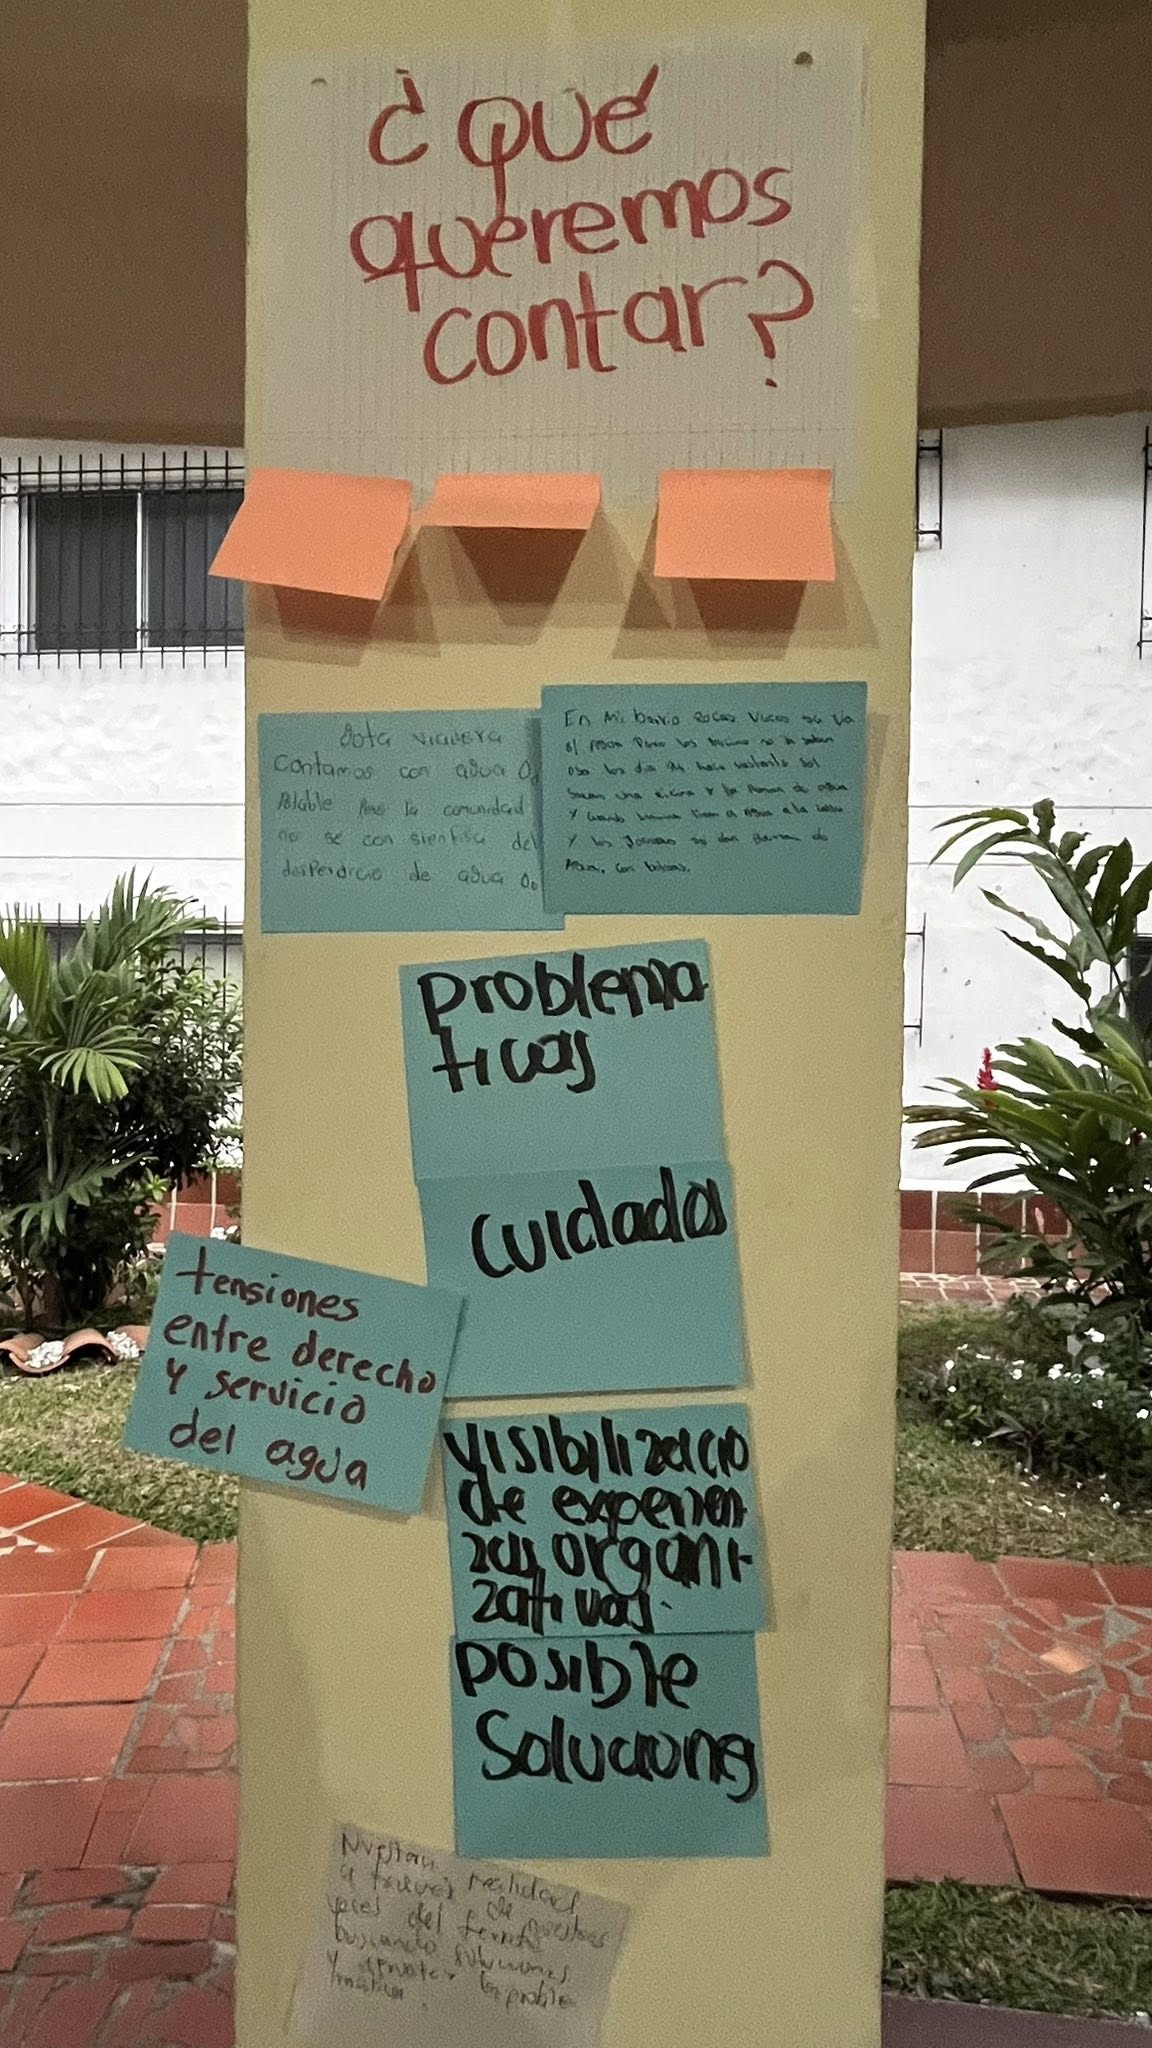 ¿Qué
queremos
contar?
Gota viajera
Contamos con agua
Potable Pero la comunidad
no se con sientisa del
desperdicio de agua
En Mi barrio se va
el Agua Pero los no
los dia que hace bastante sol
Sacan una y la de agua
Y cuando tiran el Agua a la calle
Y los Jovenes se dan de
Agua, con bolsas.
problema
ticas
cuidados
tensiones
entre derecho
y servicio
del agua
visibilizacio
de experien
zas organi-
zativas.
posible
Soluciones
Nuestra realidad
a través de nuestras
voces del
buscando soluciones
y la proble
mática.